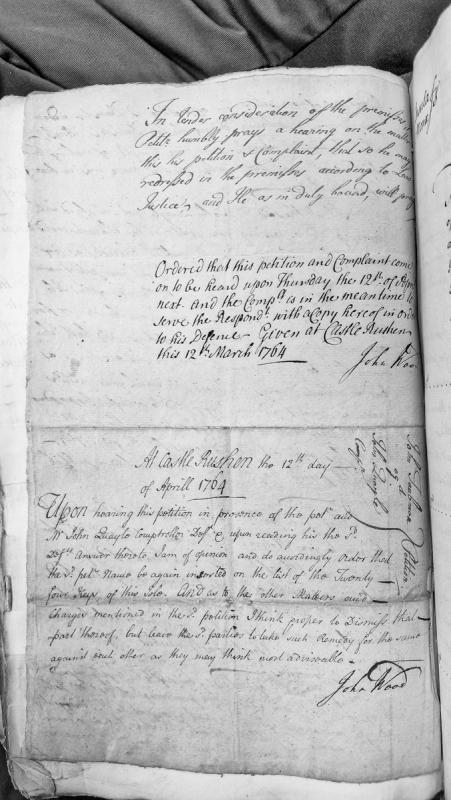 In tender consideration of the premisses
Petitr humbly prays a hearing on the matter
this his petition & Complaint, that so he may
redressed in the premisses according to Law
Justice, and He as in duty bound, will pray
Ordered that this petition and Complaint come
on to be heard upon Thursday the 12th of Apri
next. and the Compt is in the meantime to
serve the Respondt with a Copy hereof in order
to his Defence Given at Castle Rushen
this 12th March 1764
John Wood
At Castle Rushen the 12th day
of Aprill 1764
Upon hearing this petition in presence of the petr and
Mr John Quayle Comptroller Deft & upon reading his the sd
Defts Answer thereto, I am of opinion and do accordingly order that
the sd petrs Name be again inserted on the list of the Twenty
four Keys of this Isle. And as to the other Matters and
Charges mentioned in the sd petition I think proper to Dismiss that
part thereof, but leave the sd parties to take such Remedy for the same
against each other as they may think most adviseable
John Wood
John
John Quayle
Compr
Petition